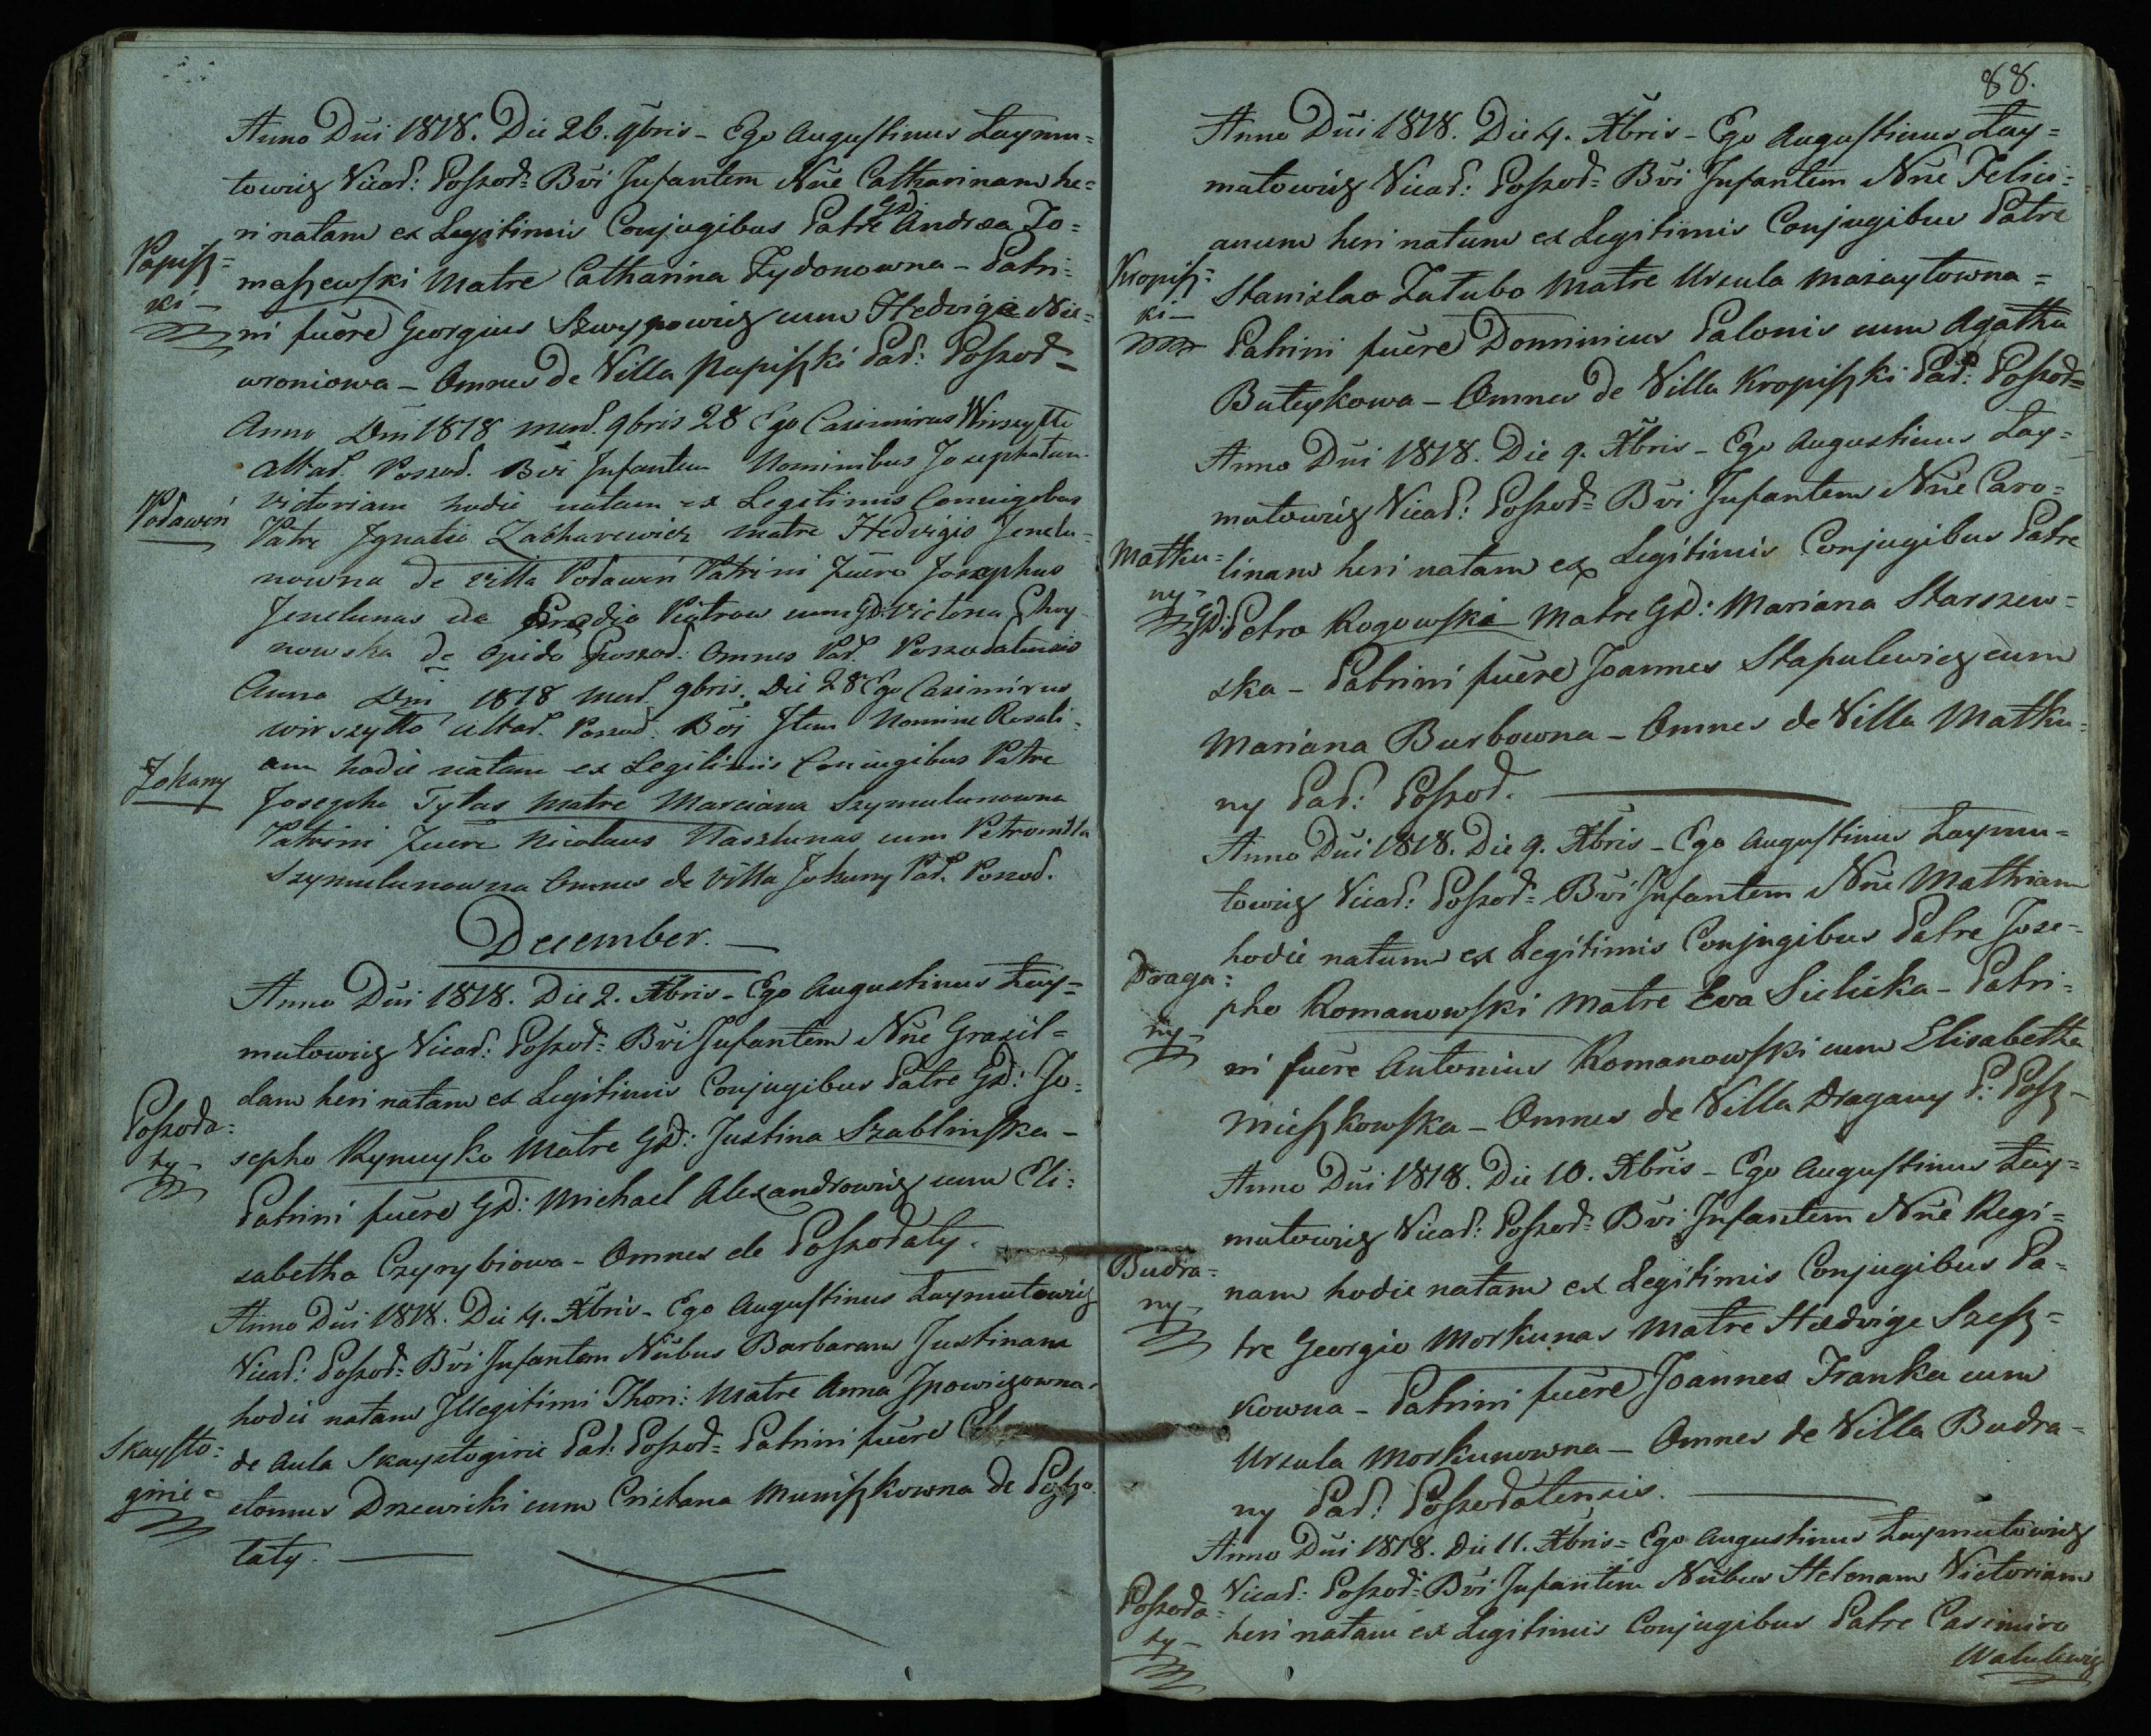 Anno Dñi 1818. Die 26. 9bris - Ego Augustinus Laymu=
towicz Vicad: Poszod= Bvi Infantem Nñe Catharinam he=
ri natam ex Legitimis Conjugibus Patre GD: Andrea To=
maszewski Matre Catharina Zydonowna - Patri=
ni fuere Georgius Szwypowicz cum Hedvige Nie=
wroniowa - Omnes de Villa Papiszki Pad: Poszod=
Papisz=
ki -
Anno Dni 1818 mend. 9bris 28 Ego Casimirus Wirszytto
Altad. Poszod. Bvi Infantem Nominibus Josephatam
Victoriam hodie natam ex Legitimis Coniugibus
Podawin
Patre Ignatio Zacharewicz matre Hedvigis Jenelu=
nowna de villa Podawin Patrini fuere Josephus
Jenelunas de Prædio Piotrow cum GD: Victoria Choy=
nowska de Opido Poszod: Omnes Pad. Poszodatensis
Anno Dni 1818 mend. 9bris. Die 28 Ego Casimirus
Wirszytto altad. Poszod. Bvi Item Nomine Rosali=
am hodie natam ex Legitimis Coniugibus Patre
Jokany
Josepho Tytas Matre Marciana Szymulunowna
Patrini fuere Nicolaus Naszlunas cum Petronilla
Szymulunowna Omnes de villa Jokany Pad. Poszod.
December. -
Anno Dñi 1818. Die 2. Xbris - Ego Augustinus Lay=
mutowicz Vicad: Poszod= Bvi Infantem Nñe Grazil=
dam heri natam ex Legitimis Conjugibus Patre GD: Jo=
Poszoda=
ty -
sepho Rymeyko Matre GD: Justina Szablinska -
Patrini fuere GD: Michael Alexandrowicz cum Eli=
sabetha Czyrybiowa - Omnes de Poszodaty.
Anno Dñi 1818. Die 4. Xbris - Ego Augustinus Laymutowicz
Vicad: Poszod= Bvi Infantem Nñbus Barbaram Justinam
hodie natam Illegitimi Thori: Matre Anna Ipowiczowna
Skaysto=
ginie -
de Aula Skaystoginie Pad: Poszod= Patrini fuere
Drzewicki cum Cristana Muniszkowna de Poszo=
taty. -
88.
Anno Dñi 1818. Die 4. Xbris - Ego Augustinus Lay=
mutowicz Vicad: Poszod= Bvi Infantem Nñe Felici=
anum heri natum ex Legitimis Conjugibus Patre
Kropisz=
ki -
Stanislao Zatubo Matre Ursula Mazaytowna =
Patrini fuere Dominicus Palonis cum Agatha
Buteykowa - Omnes de Villa Kropiszki Pad: Poszod=
Anno Dñi 1818. Die 9. Xbris - Ego Augustinus Lay=
mutowicz Vicad: Poszod= Bvi Infantem Nñe Caro=
linam heri natam ex Legitimis Conjugibus Patre
Matku=
ny -
GD: Petro Rogowski Matre GD: Mariana Starszew=
ska - Patrini fuere Joannes Stapulewicz cum
Mariana Burbowna - Omnes de Villa Matku=
ny Pad: Poszod.
Anno Dñi 1818. Die 9. Xbris - Ego Augustinus Laymu=
towicz Vicad: Poszod= Bvi Infantem Nñe Mathiam
hodie natum ex Legitimis Conjugibus Patre Jose=
Draga=
ny -
pho Romanowski Matre Eva Sielicka - Patri=
ni fuere Antonius Romanowski cum Elisabetha
Mieszkowska - Omnes de Villa Dragany P: Posz -
Anno Dñi 1818. Die 10. Xbris - Ego Augustinus Lay=
mutowicz Vicad: Poszod= Bvi Infantem Nñe Regi=
nam hodie natam ex Legitimis Conjugibus Pa=
Budra=
ny -
tre Georgio Morkunas Matre Hedvige Szesz=
kowna - Patrini fuere Joannes Franka cum
Ursula Morkunowna - Omnes de Villa Budra=
ny Pad: Poszodatensis.
Anno Dñi 1818. Die 11. Xbris = Ego Augustinus Laymutowicz
Vicad: Poszod= Bvi Infantem Nñbus Helenam Victoriam
Poszoda=
ty -
heri natam ex Legitimis Conjugibus Patre Casimiro
Walulewicz